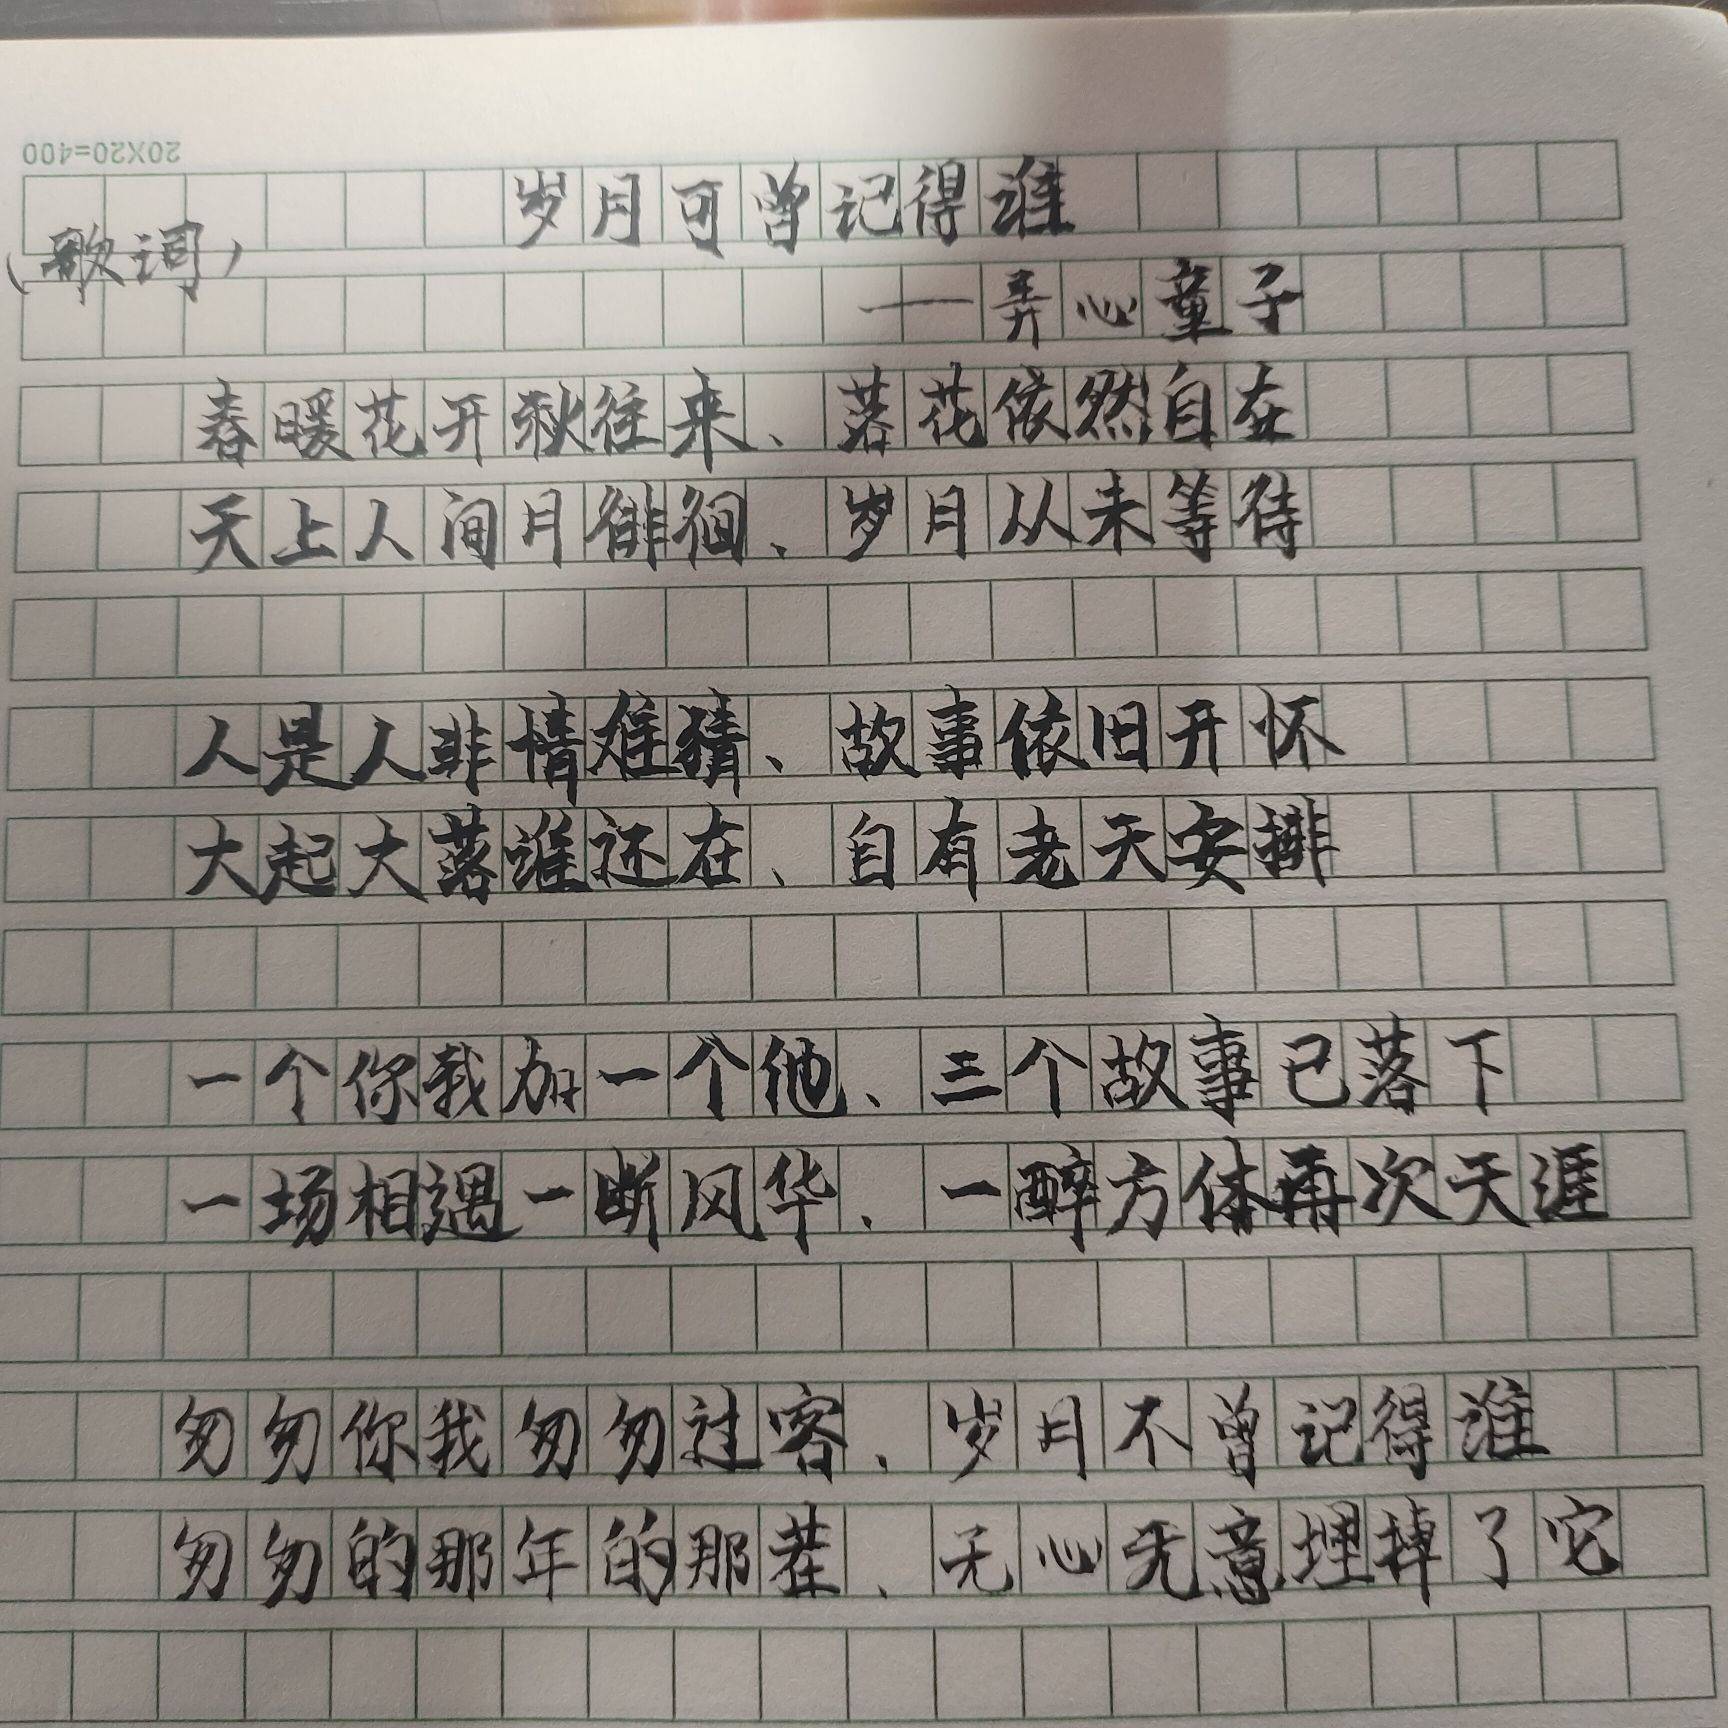 20X20=400
岁月可曾记得谁
（歌词）
——弄心童子
春暖花开秋往来、落花依然自在
天上人间月徘徊、岁月从未等待
人是人非情难猜、故事依旧开怀
大起大落谁还在、自有老天安排
一个你我加一个他、三个故事已落下
一场相遇一断风华、一醉方体再次天涯
匆匆你我匆匆过客、岁月不曾记得谁
匆匆的那年的那茬、无心无意埋掉了它